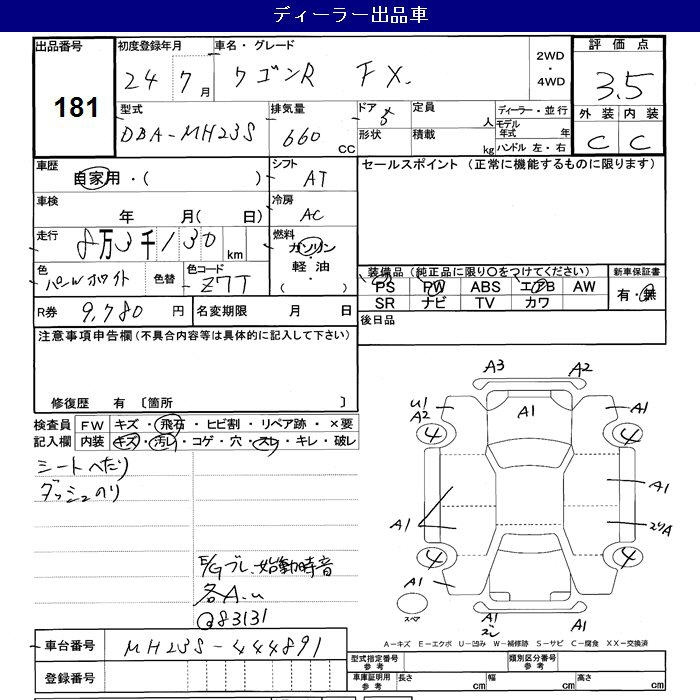 ディーラー出品車
出品番号
181
初度登録年月
24 7月
車名・グレード
ワゴンR FX.
2WD
・
4WD
評価点
3.5
外装 内装
C C
型式
DBA-MH23S
排気量
660 CC
ドア 5
形状
定員 人
積載 kg
ディーラー・並行
モデル年式 年
ハンドル 左・右
車歴
自家用・( )
シフト
AT
セールスポイント (正常に機能するものに限ります)
車検
年 月( 日)
冷房
AC
走行
8万3千130 km
燃料
ガソリン
・
軽・油
( )
色
パールホワイト
色替
色コード
Z7T
装備品 (純正品に限り○をつけてください)
PS PW ABS エアB AW
SR ナビ TV カワ
新車保証書
有・無
R券 9,780 円
名変期限 月 日
後日品
注意事項申告欄(不具合内容等は具体的に記入して下さい)
修復歴 有 〔箇所 〕
検査員
記入欄
FW キズ・飛石・ヒビ割・リペア跡・×要
内装 キズ・汚レ・コゲ・穴・スレ・キレ・破レ
シートへたり
ダッシュのり
E/Gブレ、始動時音
各A.u
@83131
A3 A2
U1
A2
A1
A1
4 4
A1
A1
4 4
A1
A1
A1
スペア
A-キズ E-エクボ U-凹み W-補修跡 S-サビ C-腐食 XX-交換済
車台番号 MH23S-444891
登録番号
型式指定番号
参考
類別区分番号
参考
車庫証明用
参考
長さ cm
幅 cm
高さ cm